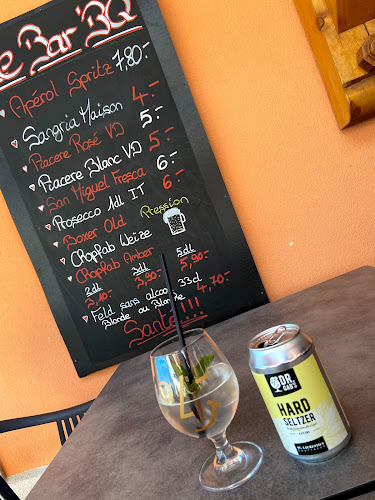 e Bar'BQ
Apérol Spritz 7,80.-
Sangria Maison 4.-
Piacere Rosé VD 5.-
Piacere Blanc VD 5.-
San Miguel Fresca 6.-
Prosecco 1dl IT 6.-
Boxer Old Pression
Chopfab Weize
Chopfab Amber
2dl 3dl 5dl
3,90.- 5,90.-
Feld sans alcool 33cl 4,70.-
Blonde ou Blanche
Santé!!!
DR.
GAB'S
HARD
SELTZER